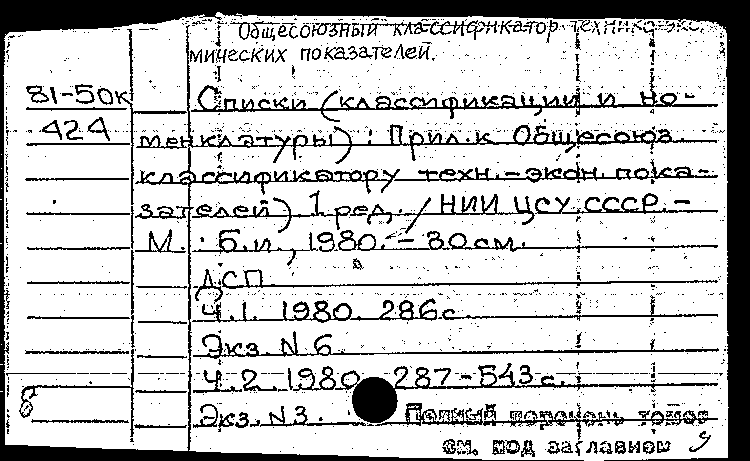 Общесоюзный классификатор технико-эконо
мических показателей.
81-50к Списки (классификации и но-
424 менклатуры) : Прил. к Общесоюз.
классификатору техн.-экон. пока-
зателей) 1 ред. / НИИ ЦСУ СССР. -
М. : Б.и., 1980. - 30 см.
ДСП
Ч.1. 1980. 286 с.
Экз. N 6.
Ч.2. 1980. 287-543 с.
8 Экз. N 3. Полный перечень томов
см. под заглавием